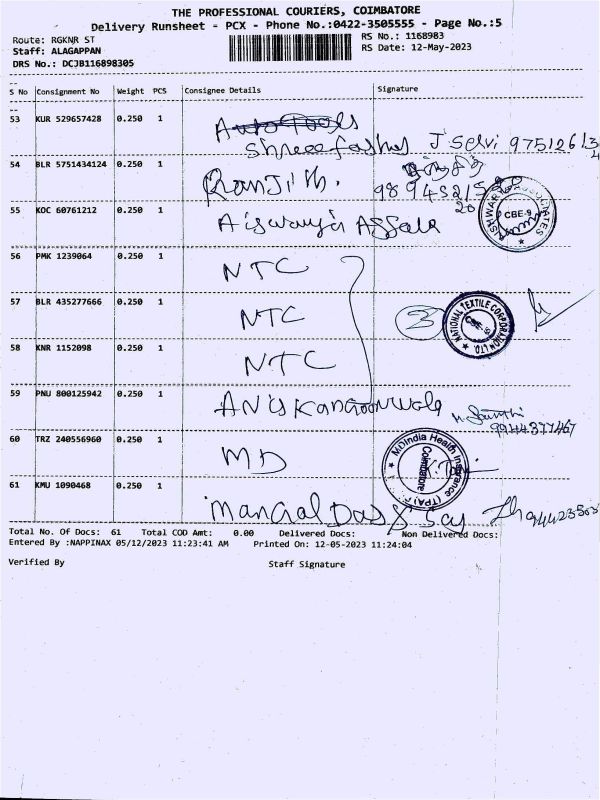 THE PROFESSIONAL COURIERS, COIMBATORE
Delivery Runsheet - PCX - Phone No.:0422-3505555 - Page No.:5
Route: RGKNR ST
RS No.: 1168983
Staff: ALAGAPPAN
RS Date: 12-May-2023
DRS No.: DCJB116898305
S No Consignment No Weight PCS Consignee Details Signature
53 KUR 529657428 0.250 1 Auto Tools
Shree J Selvi
54 BLR 5751434124 0.250 1 Ranjith.
55 KOC 60761212 0.250 1
CBE-9
ASSOCIATES
56 PMK 1239064 0.250 1 NTC
57 BLR 435277666 0.250 1 NTC 3
NATIONAL TEXTILE CORPORATION LTD.
58 KNR 1152098 0.250 1 NTC
59 PNU 800125942 0.250 1
9944377467
60 TRZ 240556960 0.250 1 MD
MDIndia Health Insurance (TPA)
Coimbatore
61 KMU 1090468 0.250 1 Mangal Das &
Total No. Of Docs: 61 Total COD Amt: 0.00 Delivered Docs: Non Delivered Docs:
Entered By :NAPPINAX 05/12/2023 11:23:41 AM Printed On: 12-05-2023 11:24:04
Verified By Staff Signature